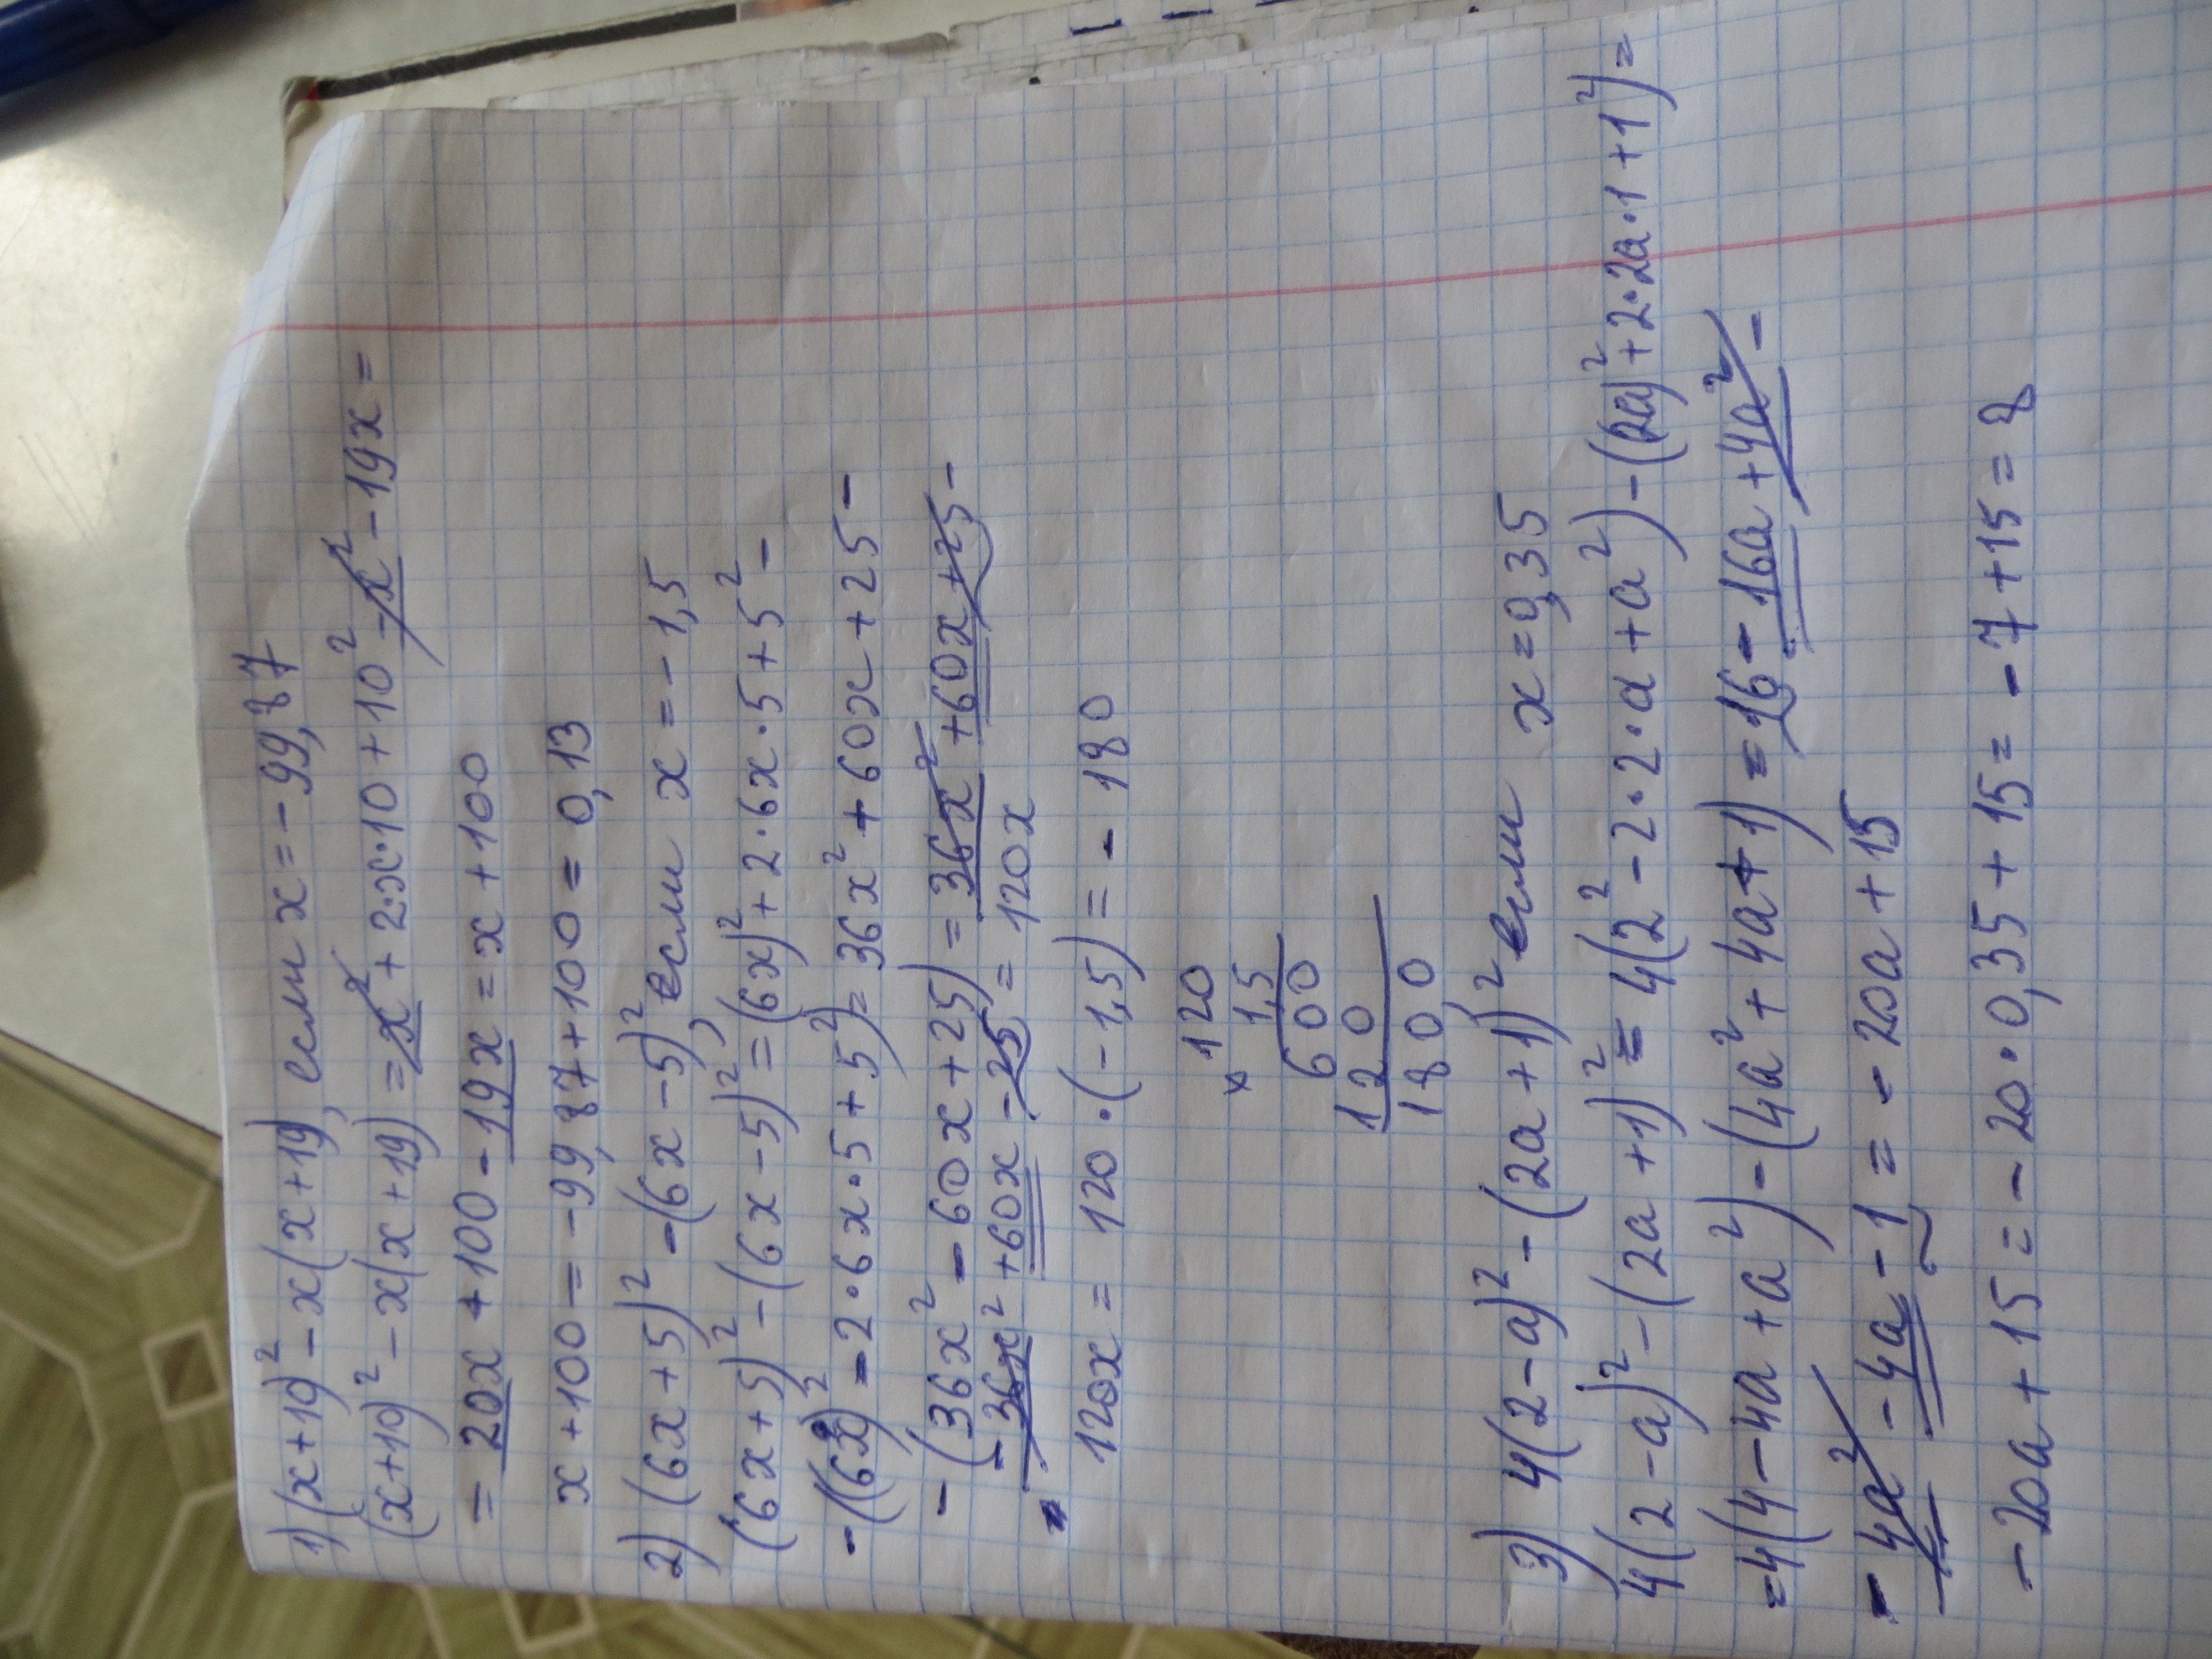 1) (x+10)² - x(x+19), если x = -99,87
(x+10)² - x(x+19) = x² + 2·x·10 + 10² - x² - 19x =
= 20x + 100 - 19x = x + 100
x + 100 = -99,87 + 100 = 0,13
2) (6x+5)² - (6x-5)², если x = -1,5
(6x+5)² - (6x-5)² = (6x)² + 2·6x·5 + 5² -
-((6x)² - 2·6x·5 + 5²) = 36x² + 60x + 25 -
-(36x² - 60x + 25) = 36x² + 60x + 25 -
- 36x² + 60x - 25 = 120x
120x = 120·(-1,5) = -180
× 120
1,5
600
120
180,0
3) 4(2-a)² - (2a+1)² если x = 0,35
4(2-a)² - (2a+1)² = 4(2² - 2·2·a + a²) - (2a)² + 2·2a·1 + 1²) =
= 4(4 - 4a + a²) - (4a² + 4a + 1) = 16 - 16a + 4a² -
- 4a² - 4a - 1 = -20a + 15
-20a + 15 = -20·0,35 + 15 = -7 + 15 = 8